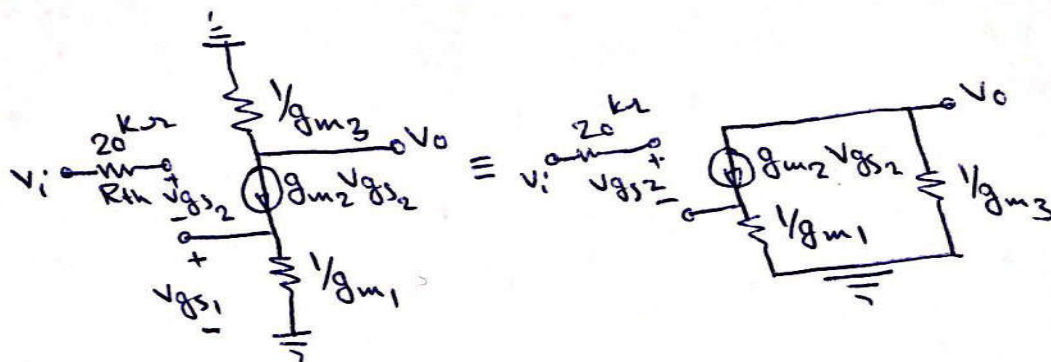 1/gm3
20 kΩ
Vi
Rth
+
Vgs2
-
gm2 Vgs2
Vo
+
Vgs1
-
1/gm1
≡
20 kΩ
Vi
+
Vgs2
-
gm2 Vgs2
1/gm1
Vo
1/gm3